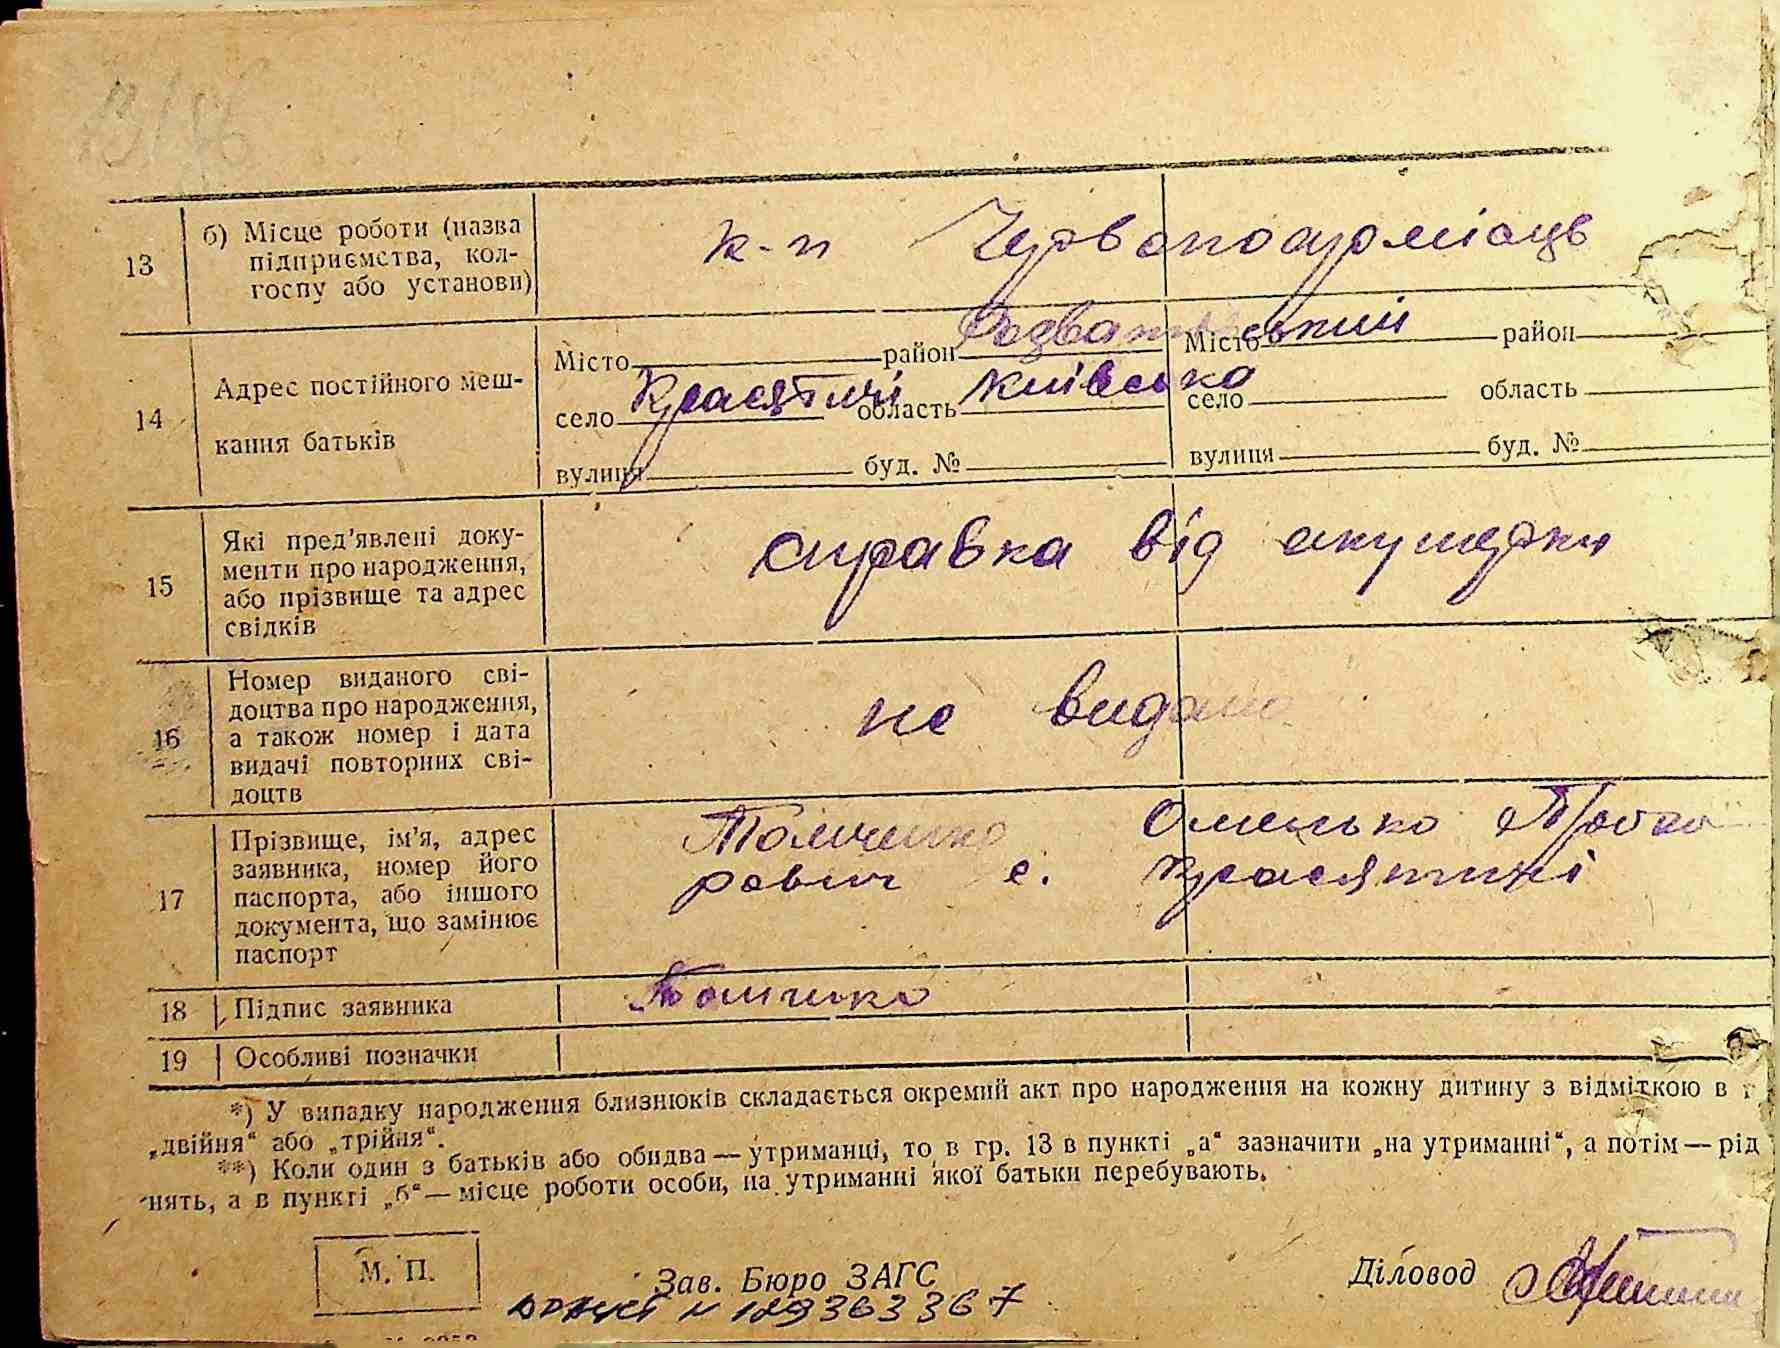 13
б) Місце роботи (назва
підприємства, кол-
госпу або установи)
к-п Червоноармієць
14
Адрес постійного меш-
кання батьків
Місто район Розважівський Місто район
село Красятичі область Київська село область
вулиця буд. № вулиця буд. №
15
Які пред'явлені доку-
менти про народження,
або прізвище та адрес
свідків
справка від акушерки
16
Номер виданого сві-
доцтва про народження,
а також номер і дата
видачі повторних сві-
доцтв
не видано
17
Прізвище, ім'я, адрес
заявника, номер його
паспорта, або іншого
документа, що замінює
паспорт
Омелько
рович с. Красятичі
18 Підпис заявника
19 Особливі позначки
*) У випадку народження близнюків складається окремий акт про народження на кожну дитину з відміткою в г
„двійня“ або „трійня“.
**) Коли один з батьків або обидва — утриманці, то в гр. 13 в пункті „а“ зазначити „на утриманні“, а потім — рід
нять, а в пункті „б“ — місце роботи особи, на утриманні якої батьки перебувають.
М. П.
Зав. Бюро ЗАГС
Діловод
N 129363367